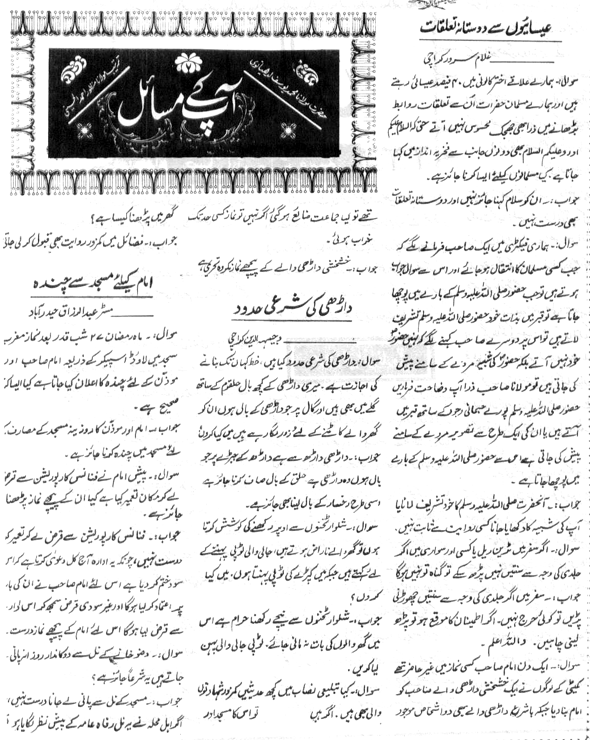 عیسائیوں سے دوستانہ تعلقات
غلام سرور کراچی
سوال:۔ ہمارے علاقے اختر کالونی میں ۴۰ فیصد عیسائی رہتے
ہیں اور ہمارے مسلمان حضرات اُن سے تعلقات روابط
بڑھانے میں ذرا بھی جھجک محسوس نہیں کرتے حتیٰ کہ السلام علیکم
اور وعلیکم السلام بھی دونوں جانب سے فخریہ انداز میں کہا
جاتا ہے کیا مسلمانوں کیلئے ایسا کرنا جائز ہے۔
جواب:۔ ان کو سلام کہنا جائز نہیں اور دوستانہ تعلقات
بھی درست نہیں۔
سوال:۔ ہماری فیکٹری میں ایک صاحب فرمانے لگے کہ
جب کسی مسلمان کا انتقال ہو جائے اور اس سے سوال جواب
ہوتے ہیں تو جب حضور صلی اللہ علیہ وسلم کے بارے میں پوچھا
جاتا ہے تو قبر میں بذات خود حضور صلی اللہ علیہ وسلم تشریف
لاتے ہیں تو اس پر دوسرے صاحب کہنے لگے کہ نہیں حضورؐ
خود نہیں آتے بلکہ حضورؐ کی شبیہ مردے کے سامنے پیش
کی جاتی ہیں تو مولانا صاحب ذرا آپ وضاحت فرمادیں
حضور صلی اللہ علیہ وسلم پورے جسمانی وجود کے ساتھ قبر میں
آتے ہیں یا ان کی ایک طرح سے تصویر مردے کے سامنے
پیش کی جاتی ہے اور اس سے حضور صلی اللہ علیہ وسلم کے بارے
میں پوچھا جاتا ہے۔
جواب:۔ آنحضرت صلی اللہ علیہ وسلم کا خود تشریف لانا یا
آپ کی شبیہ کا دکھایا جانا کسی روایت سے ثابت نہیں۔
سوال:۔ اگر سفر میں ٹرین، ریل یا کسی اور سواری میں اگر
جلدی کی وجہ سے سنتیں نہیں پڑھ سکے تو گناہ تو نہیں ہوگا
جواب:۔ سفر میں اگر جلدی کی وجہ سے سنتیں چھوڑنی
پڑیں تو کوئی حرج نہیں۔ اگر اطمینان کا موقع ہو تو پڑھ
لینی چاہئیں۔ واللہ اعلم۔
سوال:۔ ایک دن امام صاحب کسی نماز میں غیر حاضر تھے
کمیٹی کے لوگوں نے ایک خشخشی داڑھی والے صاحب کو
امام بنا دیا جبکہ باشرع داڑھی والے بھی دو اشخاص موجود
آپ کے مسائل
تھے تو کیا جماعت ضائع ہوگئی اگر نہیں تو نماز کس حد تک
خراب ہوئی۔
جواب:۔ خشخشی داڑھی والے کے پیچھے نماز مکروہ تحریمی ہے
داڑھی کی شرعی حدود
وجیہہ الدین کراچی
سوال:۔ داڑھی کی شرعی حدود کیا ہیں، خط کہاں تک بنانے
کی اجازت ہے۔ میری داڑھی کے کچھ بال حلقوم کے ساتھ
گلے میں بھی ہیں اور گال پر جو داڑھی کے بال ہوں ان کو
گھر والے کاٹنے کے لئے زور لگا رہے ہیں میں کیا کروں؟
جواب:۔ داڑھی داڑھ سے ہے داڑھ کے جبڑے پر جو
بال ہوں وہ داڑھی ہے حلق کے بال صاف کرنا جائز ہے
اسی طرح رخسار کے بال لینا بھی جائز ہے۔
سوال:۔ شلوار ٹخنوں سے اوپر رکھنے کی کوشش کرتا
ہوں تو گھر والے ناراض ہوتے ہیں، جالی والی ٹوپی پہننے کے
لئے کہتے ہیں جبکہ میں کپڑے کی ٹوپی پہنتا ہوں، میں کیا
کروں؟
جواب:۔ شلوار ٹخنوں سے نیچے رکھنا حرام ہے اس
میں گھر والوں کی بات نہ مانی جائے۔ ٹوپی جالی والی پہن
لیا کریں۔
سوال:۔ کیا تبلیغی نصاب میں کچھ حدیثیں کمزور شہادتوں
والی بھی ہیں۔ اگر ہیں تو اس کا مسجد اور
گھر میں پڑھنا کیسا ہے؟
جواب:۔ فضائل میں کمزور روایت بھی قبول کر لی جاتی
امام کیلئے مسجد سے چندہ
مسٹر عبدالرزاق حیدرآباد
سوال:۔ ماہ رمضان ۲۷ شب قدر بعد نماز مغرب
مسجد میں لاؤڈ اسپیکر کے ذریعہ امام صاحب اور
موذن کے لئے چندہ کا اعلان کیا جاتا ہے کیا ایسا کرنا
صحیح ہے۔
جواب:۔ امام اور موذن کا روزینہ مسجد کے مصارف کے
لئے مسجد میں چندہ کرنا جائز ہے۔
سوال:۔ پیش امام نے فنانس کارپوریشن سے قرض
لے کر مکان تعمیر کیا ہے کیا ان کے پیچھے نماز پڑھنا
جائز ہے۔
جواب:۔ فنانس کارپوریشن سے قرض لے کر تعمیر کرنا
درست نہیں، چونکہ یہ ادارہ آج کل دعویٰ کرتا ہے کہ اس نے
سود ختم کر دیا ہے اس لئے امام صاحب نے ان کی بات
پر اعتماد کر لیا ہوگا اور غیر سودی قرض سمجھ کر اس ادارہ
سے قرض لیا ہوگا اس لئے امام کے پیچھے نماز درست
سوال:۔ وضو خانے کے نل سے دوکاندار روزانہ پانی
جاتے ہیں یہ شرعاً جائز ہے؟
جواب:۔ مسجد کے نل سے پانی لے جانا درست نہیں،
اگر اہل محلہ نے یہ نل رفاہ عامہ کے پیش نظر لگایا ہو تو